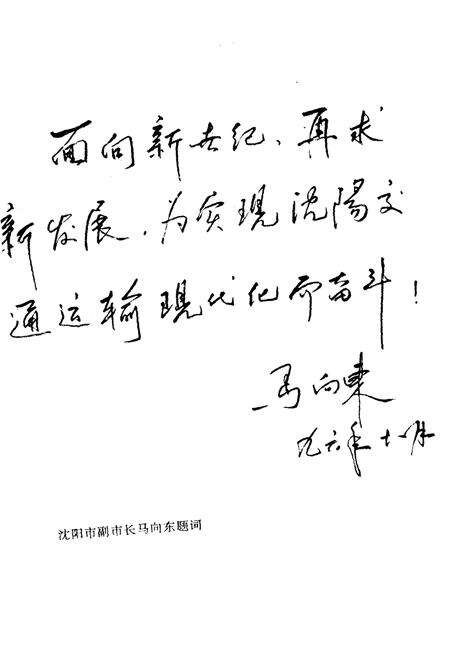 面向新世纪、再求
新发展，为实现沈陽交
通运输现代化而奋斗！
马向東
九六年十一月
沈阳市副市长马向东题词